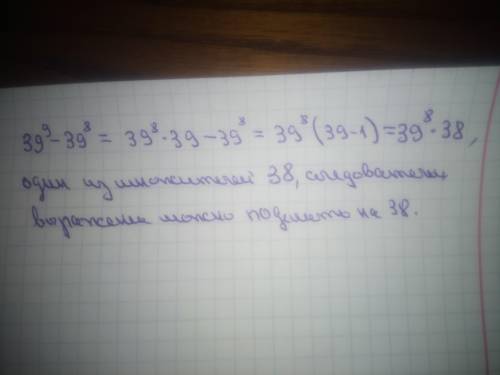 39⁹-39⁸ = 39⁸·39-39⁸ = 39⁸(39-1)=39⁸·38,
один из множителей 38, следовательно
выражение можно поделить на 38.